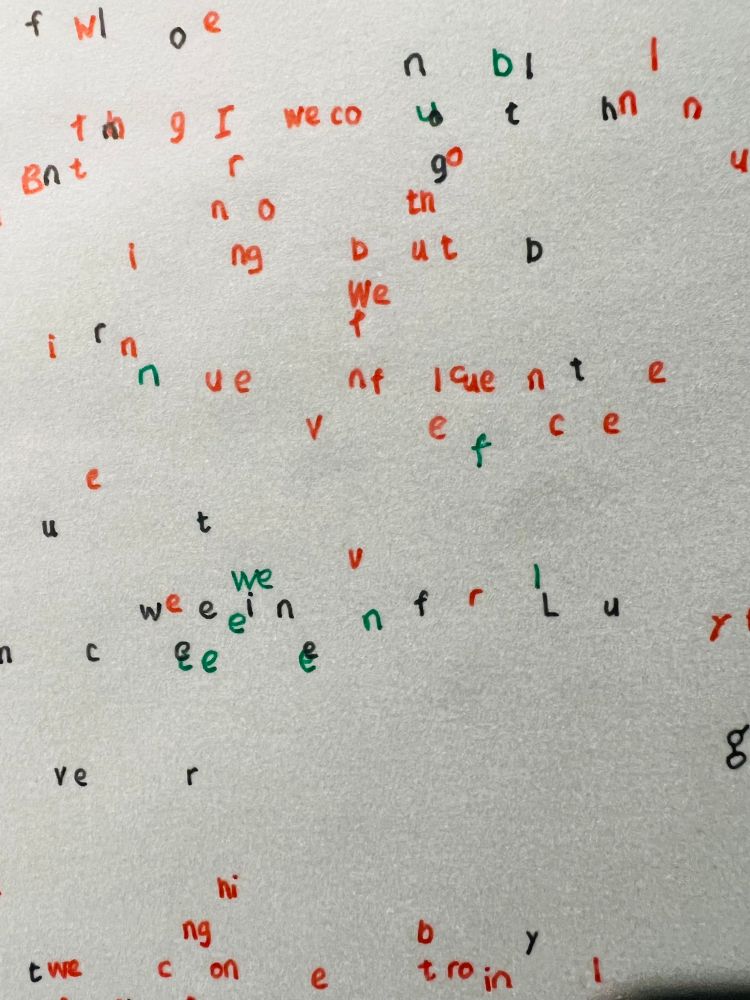 f wl o e
n bl l
t h g I we co u t h n n
B n t r go u
n o th
i ng b ut b
We
f
i r n
n ue nf l que n t e
v e f c e
e
u t
v
we l
we e i n f r L u
e n r
n c e e e
g
ve r
hi
ng b y
t we c on e t ro in l